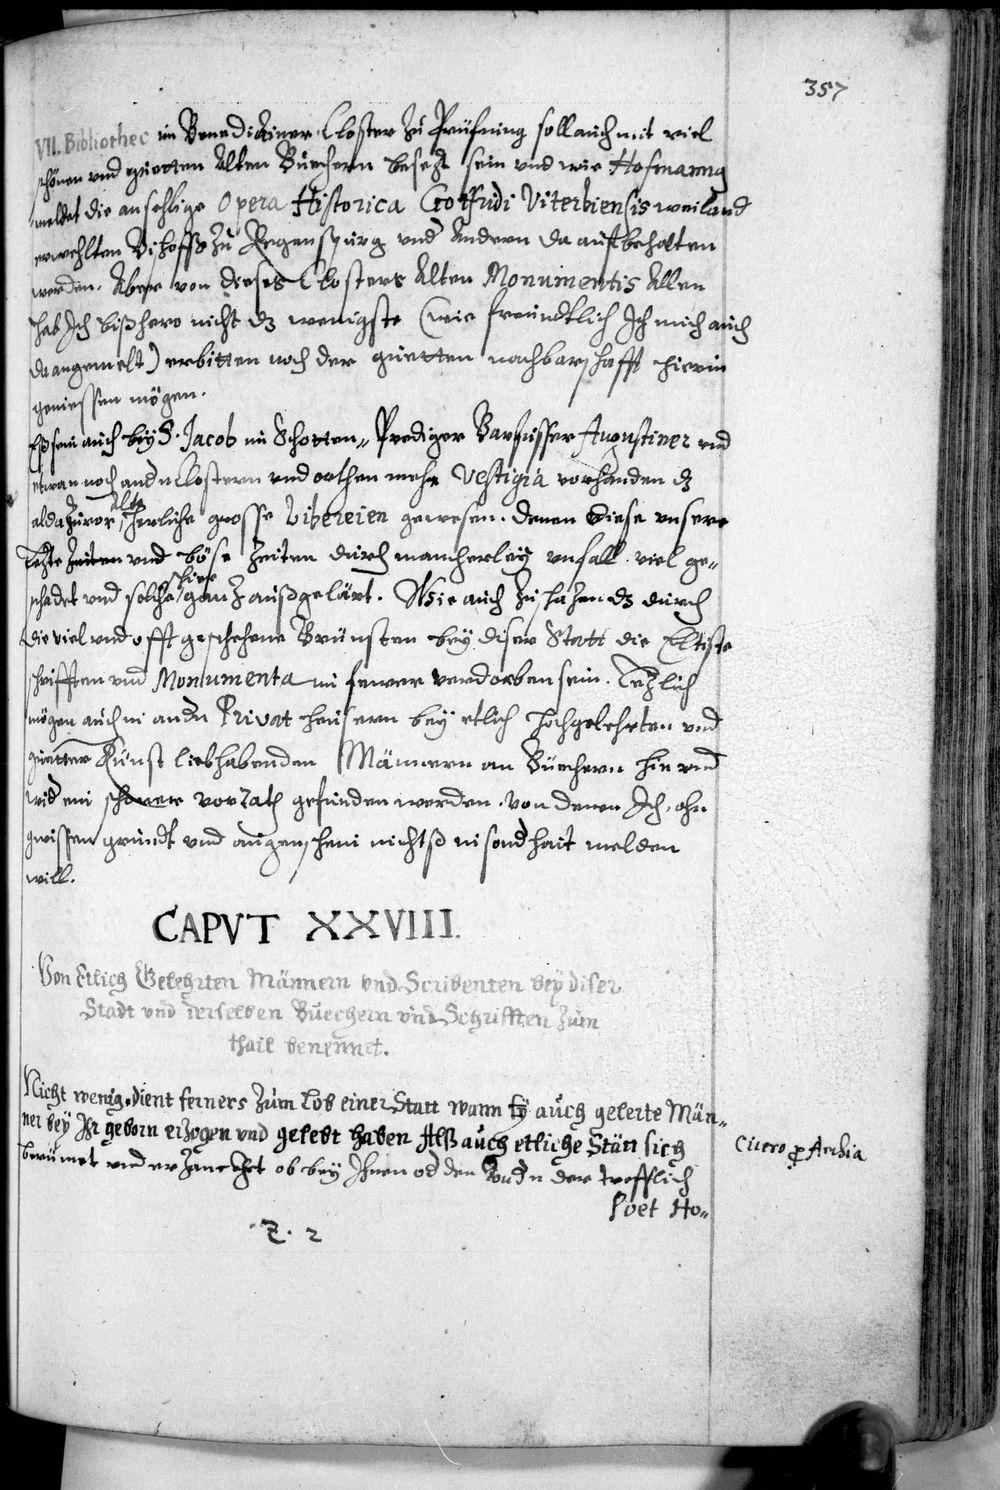 357
VII. Bibliothec im Benedictiner Closter zu Prüfning soll auch mit viel
schönen und guetten Alten Büechern besezt sein und wie Hofmanng
meldet die ansehlige Opera Historica Gottfridi Viterbiensis weiland
erwehlten Bischoffs zu Regenspurg und Andern da aufbehalten
werden. Aber von dieses Closters Alten Monumentis Allen
hab Ich bißhero nicht dz wenigste (wie freündtlich Ich mich auch
da angemelt) erbitten noch der guetten nachbarschafft hierin
geniessen mögen.
Eß sein auch bey S. Jacob im Schotten= Prediger Barfüsser Augustiner und
etwan noch andn Clöstern und orthen mehr Vestigia vorhanden dz
alda zuvor alte herliche grosse Libereien gewesen. denen diese unsere
lezte zeiten und böse zeiten durch mancherley unfall viel ge=
schadet und solche schier ganz außgelärt. Wie auch zu schäzen dz durch
die viel und offt geschehene Brünsten bey diser Statt die Eltiste
schrifften und Monumenta im fewer verdorben sein. Lezlich
mögen auch in andn Privat heüsern bey etlich hochgelehrten und
guetter Künst liebhabenden Männern an Büechern hin und
wid ein schöner vorrath gefunden werden. von denen Ich ohn
gwissen grundt und augenschein nichtß in sondhait melden
will.
CAPVT XXVIII.
Von Etlich Gelehrten Männern vnd Scribenten bey diser
Stadt vnd derselben Büechern vnd Schrifften zum
thail benennet.
Nicht wenig dient ferners zum lob einer Statt wann sy auch gelerte Män=
ner bey Ihr geborn erzogen vnd gelebt haben Alß auch etliche Stätt sich
berümet und ob bey Ihnen od den Andn der trefflich
Poet Ho=
Cicero p Archia
Z. 2